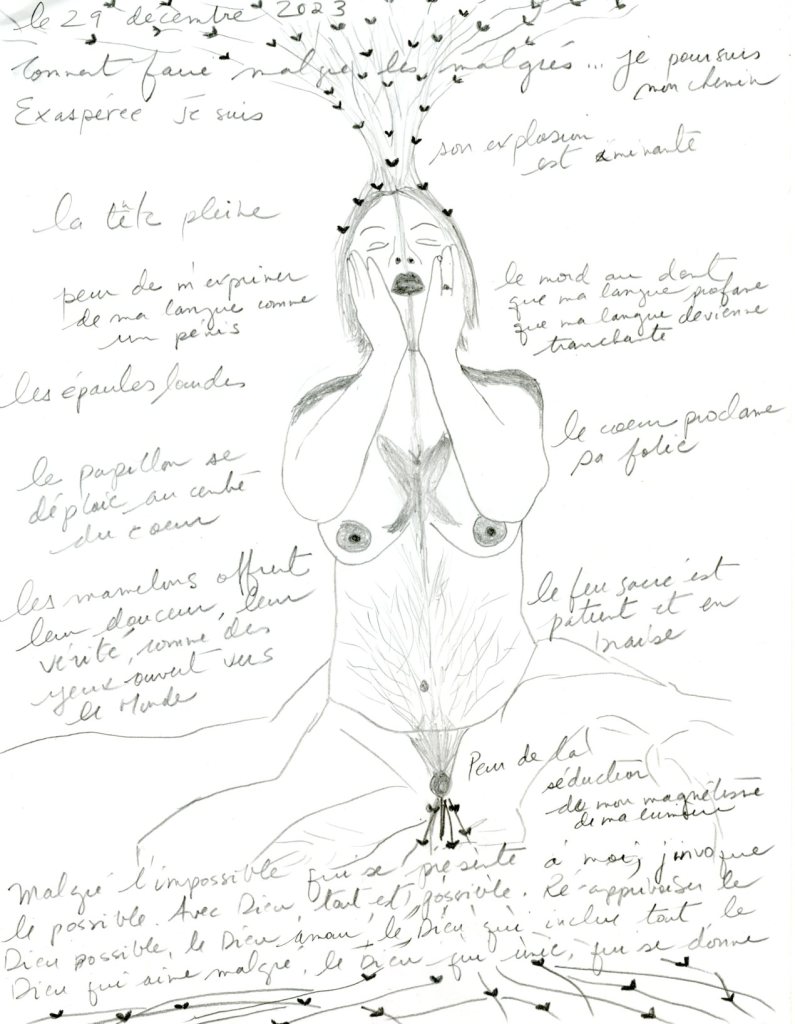 le 29 décembre 2023
Comment faire malgré les malgrés... je poursuis
mon chemin
Exaspérée je suis
son explosion
est iminante
la tête pleine
peur de m'exprimer
de ma langue comme
un pénis
le mord au dent
que ma langue profane
que ma langue devienne
tranchante
les épaules lourdes
le coeur proclame
sa folie
le papillon se
déploie au centre
du coeur
les mamelons offrent
leur douceur, leur
vérité, comme des
yeux ouvert vers
le Monde
le feu sacré est
patient et en
braise
Peur de la
séduction
de mon magnétisme
de ma lumière
Malgré l'impossible qui se présente à moi, j'invoque
le possible. Avec Dieu tout est possible. Ré-apprivoiser le
Dieu possible, le Dieu amour, le Dieu qui inclue tout le
Dieu qui aime malgré, le Dieu qui unie, qui se donne